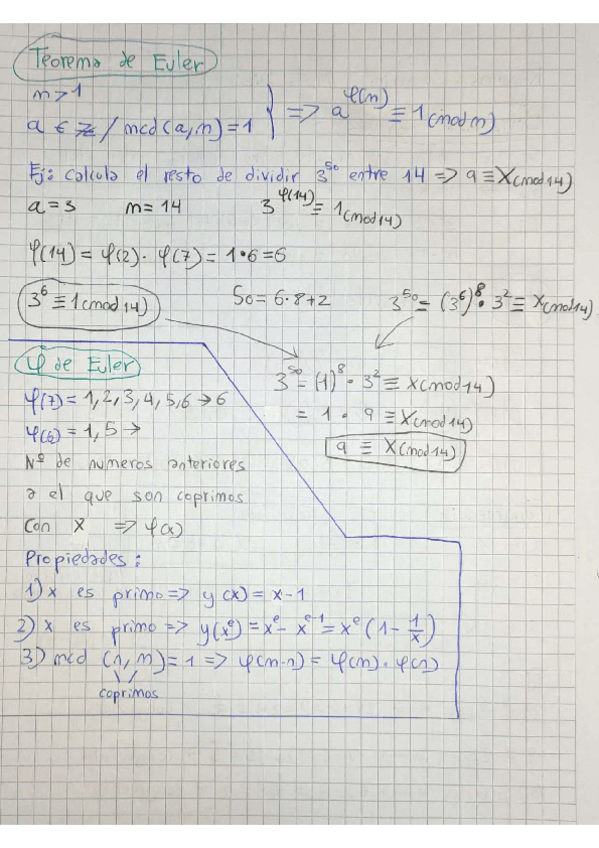 Teorema de Euler
m > 1
a ∈ ℤ / mcd(a,m) = 1 } => a^φ(m) ≡ 1 (mod m)
Ej: calcula el resto de dividir 3^50 entre 14 => 9 ≡ X (mod 14)
a = 3 m = 14 3^φ(14) ≡ 1 (mod 14)
φ(14) = φ(2) · φ(7) = 1 · 6 = 6
3^6 ≡ 1 (mod 14) 50 = 6·8+2 3^50 = (3^6)^8 · 3^2 ≡ X (mod 14)
3^50 = (1)^8 · 3^2 ≡ X (mod 14)
= 1 · 9 ≡ X (mod 14)
9 ≡ X (mod 14)
φ de Euler
φ(7) = 1, 2, 3, 4, 5, 6 → 6
φ(6) = 1, 5 →
Nº de numeros anteriores
a el que son coprimos
con X => φ(x)
Propiedades:
1) x es primo => y(x) = x - 1
2) x es primo => y(x^e) = x^e - x^e-1 = x^e (1 - 1/x)
3) mcd (n, m) = 1 => φ(m·n) = φ(m) · φ(n)
coprimos